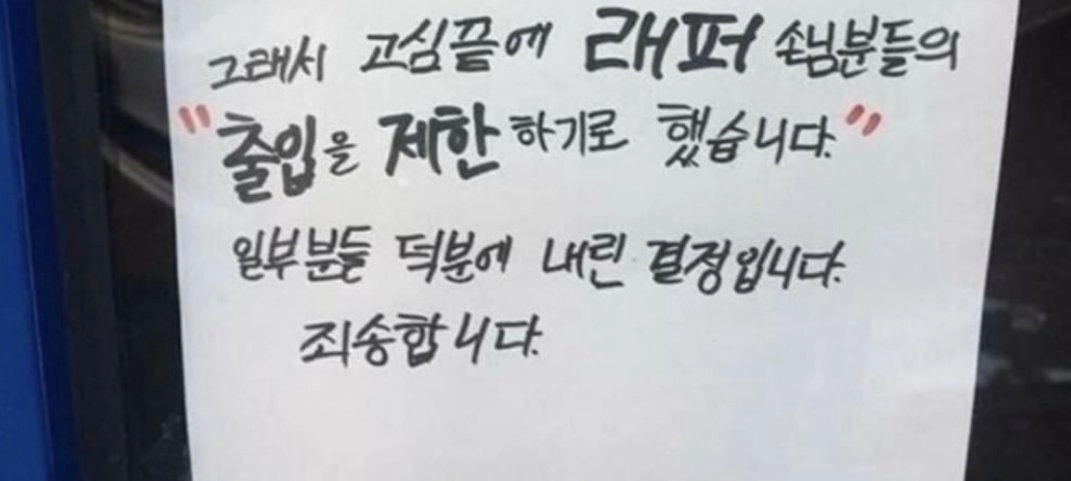 그래서 고심끝에 래퍼 손님분들의
"출입을 제한하기로 했습니다."
일부분들 덕분에 내린 결정입니다.
죄송합니다.